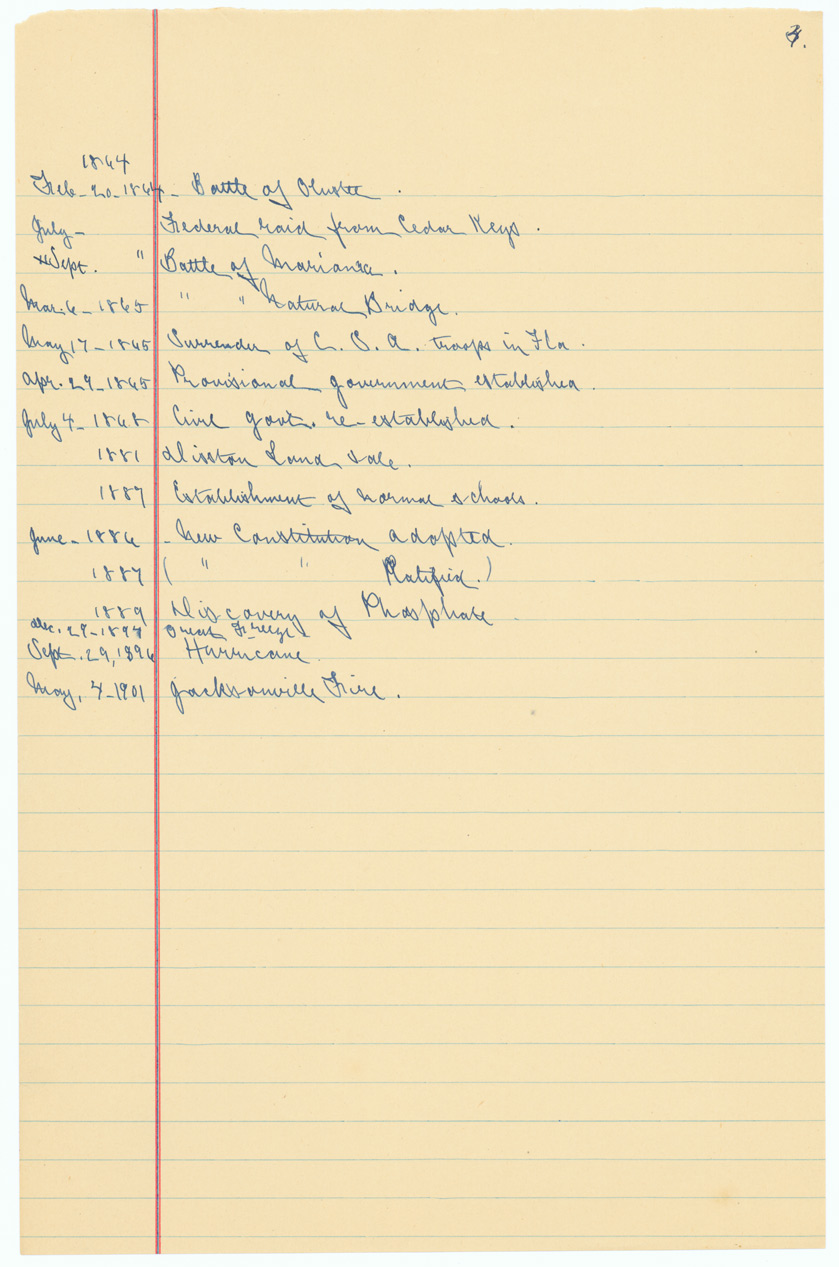 4.
1864
Feb-20-1864- Battle of Olustee.
July- Federal raid from Cedar Keys.
Sept. " Battle of Marianna.
Mar.6-1865 " " Natural Bridge.
May 17-1865 Surrender of C. S. A. troops in Fla.
Apr. 29-1865 Provisional government established.
July 4-1868 Civil govt. re-established.
1881 Disston Land sale.
1887 Establishment of normal schools.
June-1886 - New Constitution adopted.
1887 ( " " Ratified.)
1889 Discovery of Phosphate.
Dec. 29-1894 Great Freeze
Sept. 29, 1896 Hurricane.
May, 4-1901 Jacksonville Fire.